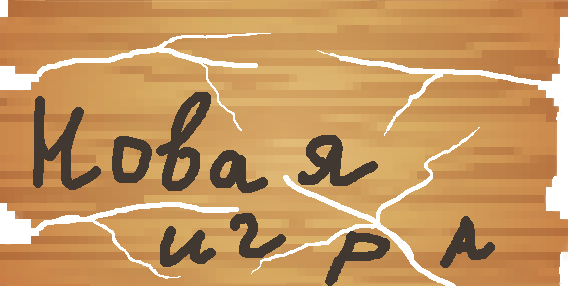 Новая
игра